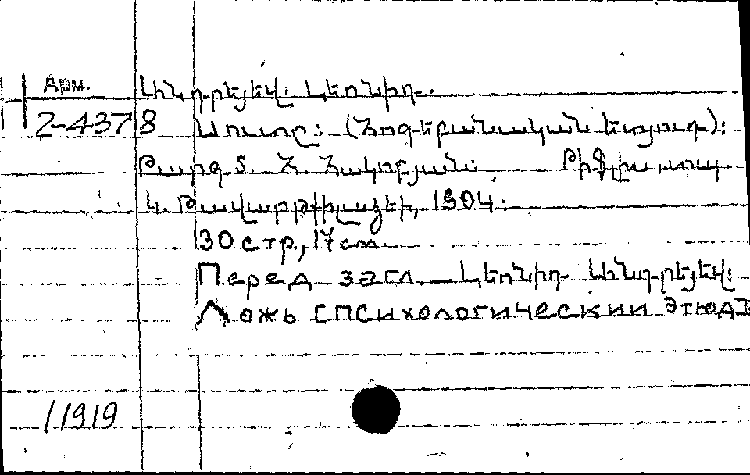 Арм.
2-4378
Անդրեյեվ Լեոնիդ.
Սուտը: (Հոգեբանական ետյուդ):
Թարգ. Տ. Հ. Հակոբյան: Թիֆլիս, տպ
Կ. Թավարթխիլաձեի, 1904.
30 стр, 17 см
Перед загл. Լեոնիդ Անդրեյեվ
Ложь [психологический этюд]
11919